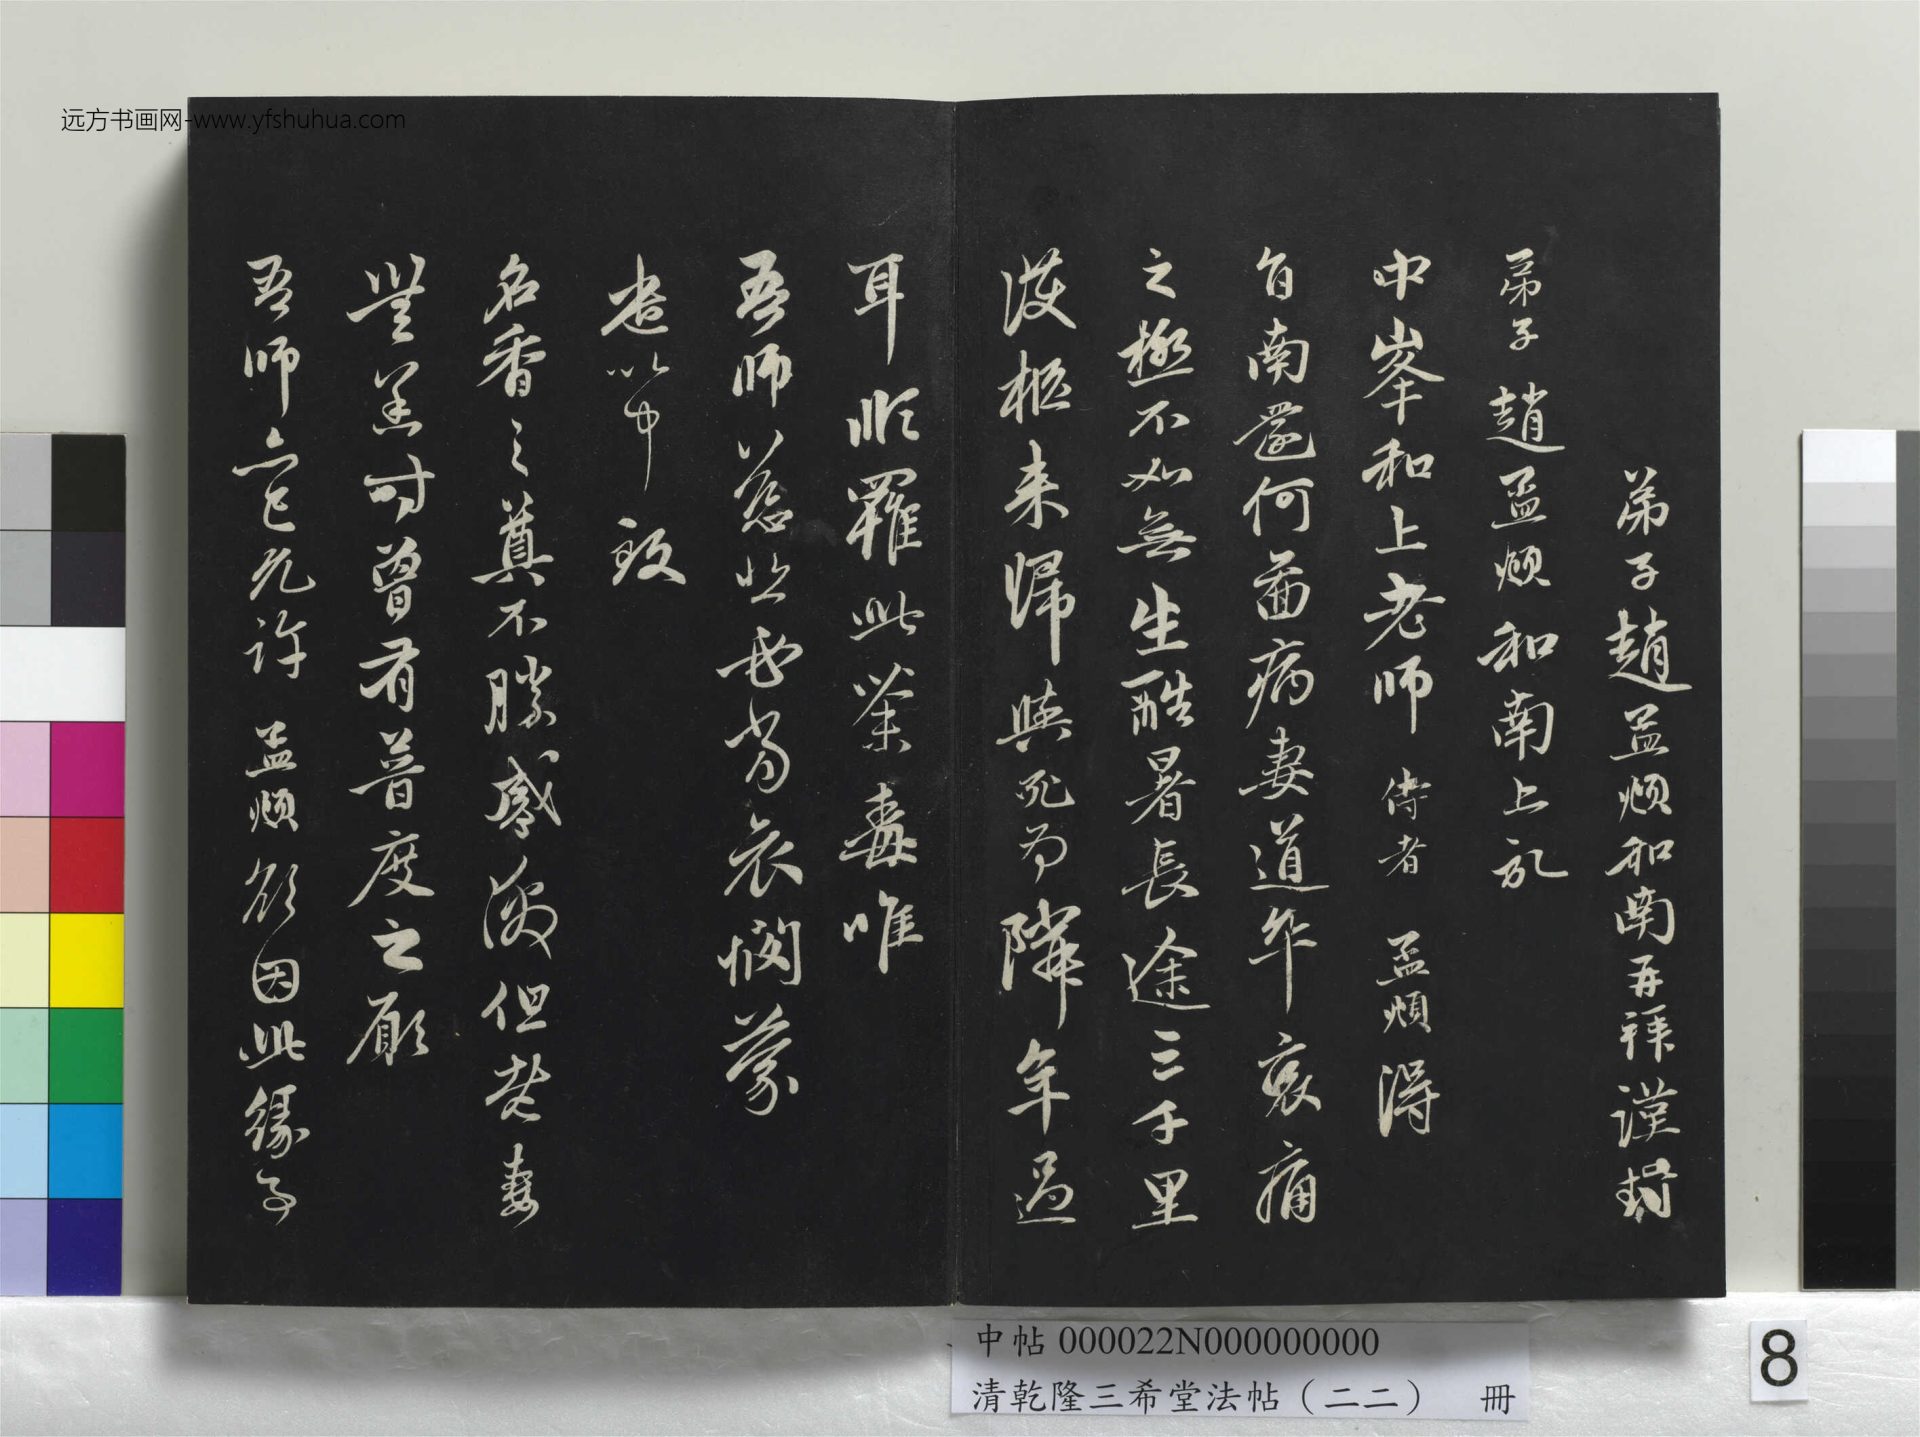 弟子趙孟頫和南再拜謹封
弟子 趙孟頫 和南上記
中峯和上老師 侍者 孟頫得
旨南還何啚病妻道卒哀痛
之極不如無生酷暑長途三千里
護柩来歸與死為隣年過
耳順罹此荼毒唯
吾師慈悲必當哀憫蒙
遣以中致
名香之奠不勝感激但老妻
無恙時曾有普度之願
吾師亦已允許 孟頫欲因此緣事
远方书画网-www.yfshuhua.com
中帖 000022N000000000
清乾隆三希堂法帖（二二） 冊
8